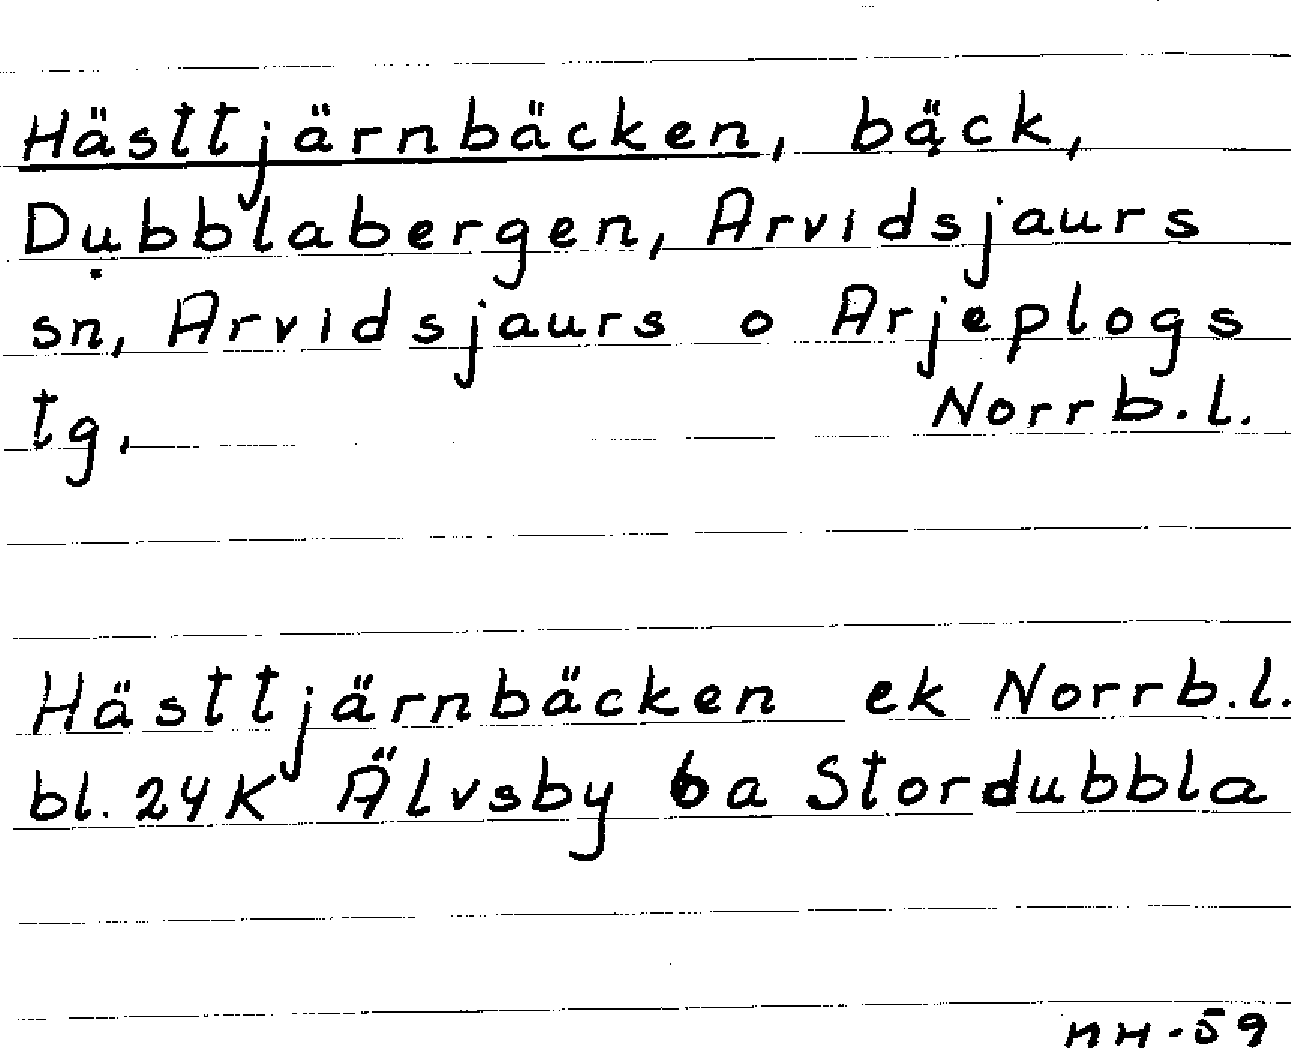 Hästtjärnbäcken, bäck,
Dubblabergen, Arvidsjaurs
sn, Arvidsjaurs o Arjeplogs
tg, Norrb.l.
Hästtjärnbäcken ek Norrb.l.
bl. 24K Älvsby 6a Stordubbla
NH-59